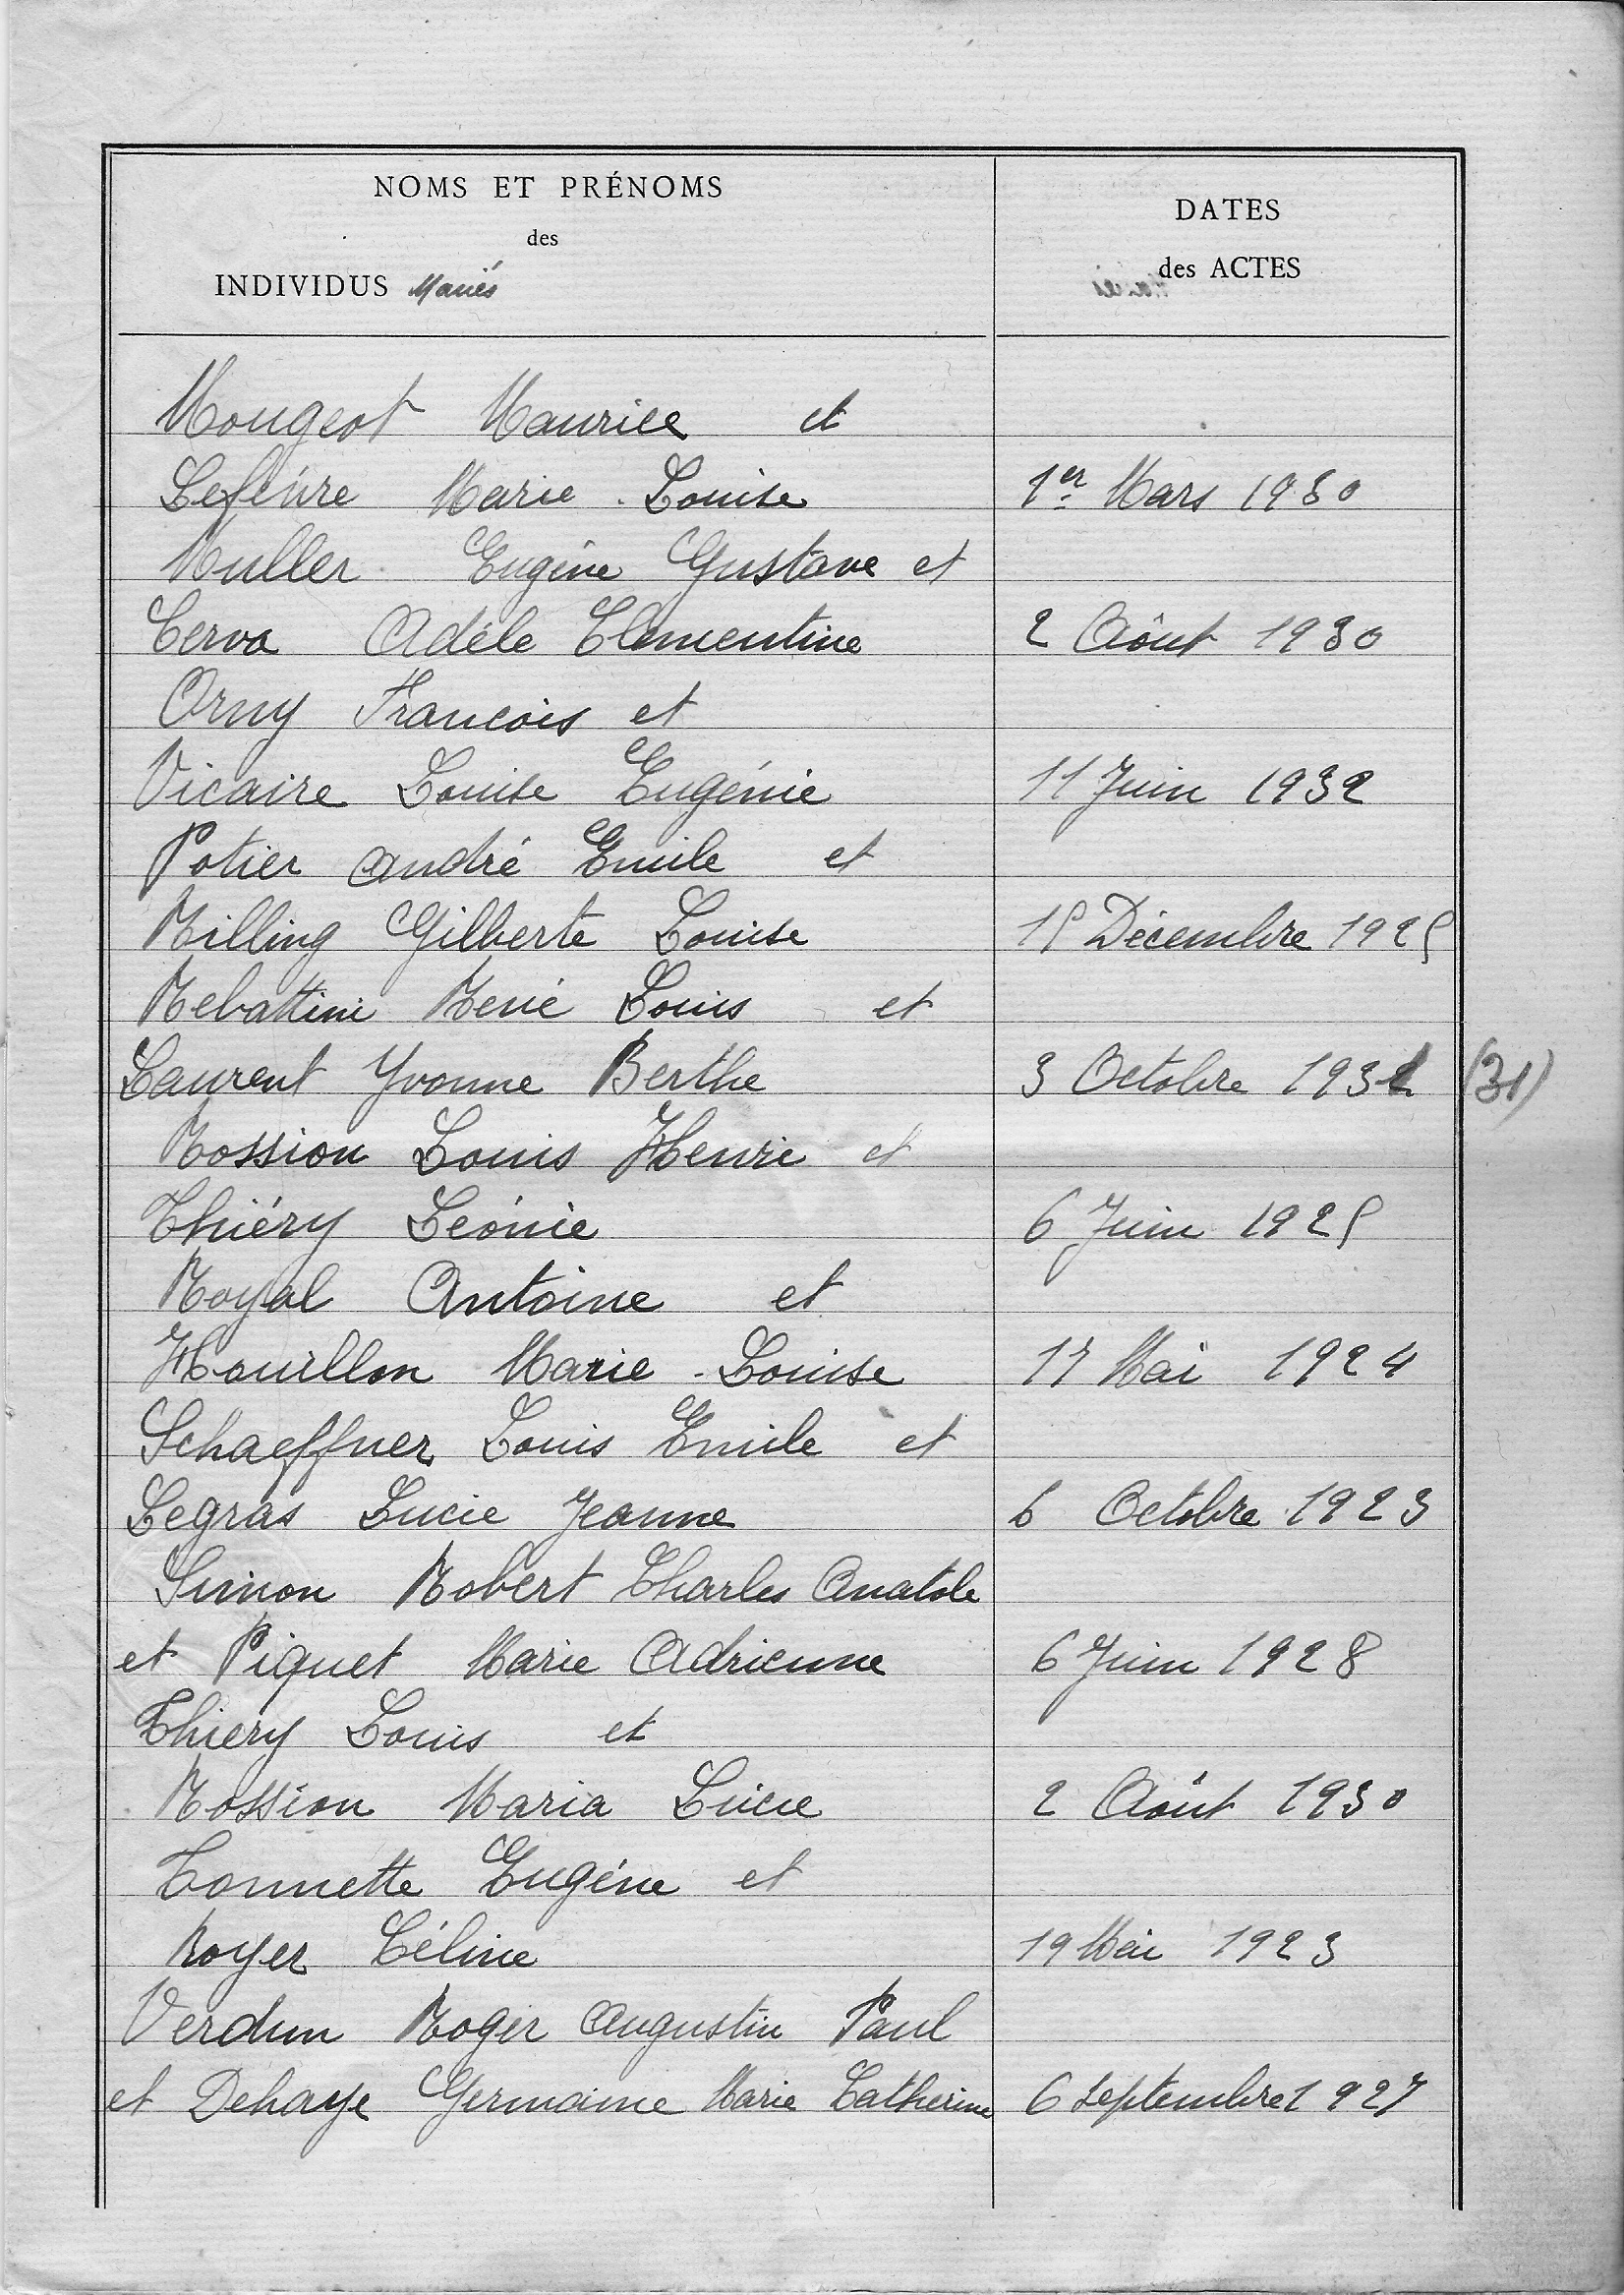 NOMS ET PRÉNOMS
des
INDIVIDUS Mariés
DATES
des ACTES
Mougeot Maurice et
Lefèvre Marie-Louise 1er Mars 1930
Muller Eugène Gustave et
Cerva Adèle Clémentine 2 Aôut 1930
Orny François et
Vicaire Louise Eugénie 11 Juin 1932
Potier André Emile et
Rilling Gilberte Louise 15 Décembre 1925
Rebattini René Louis et
Laurent Yvonne Berthe 3 Octobre 1931 (31)
Rossion Louis Henri et
Thiéry Léonie 6 Juin 1925
Royal Antoine et
Houillon Marie-Louise 17 Mai 1924
Schaeffner Louis Emile et
Legras Lucie Jeanne 6 Octobre 1923
Simon Robert Charles Anatole
et Piquet Marie Adrienne 6 Juin 1928
Thiery Louis et
Rossion Maria Lucie 2 Aôut 1930
Tonnette Eugène et
Royer Céline 19 Mai 1923
Verdun Roger Augustin Paul
et Dehaye Germaine Marie Catherine 6 Septembre 1927